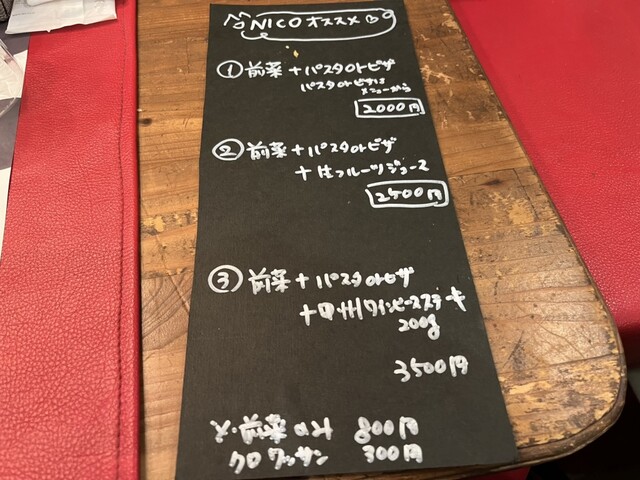 NICOオススメ
① 前菜+パスタorピザ
パスタorピザは
メニューから
2000円
② 前菜+パスタorピザ
+生フルーツジュース
2500円
③ 前菜+パスタorピザ
+甲州ワインビーフステーキ
200g
3500円
前菜のみ 800円
クロワッサン 300円